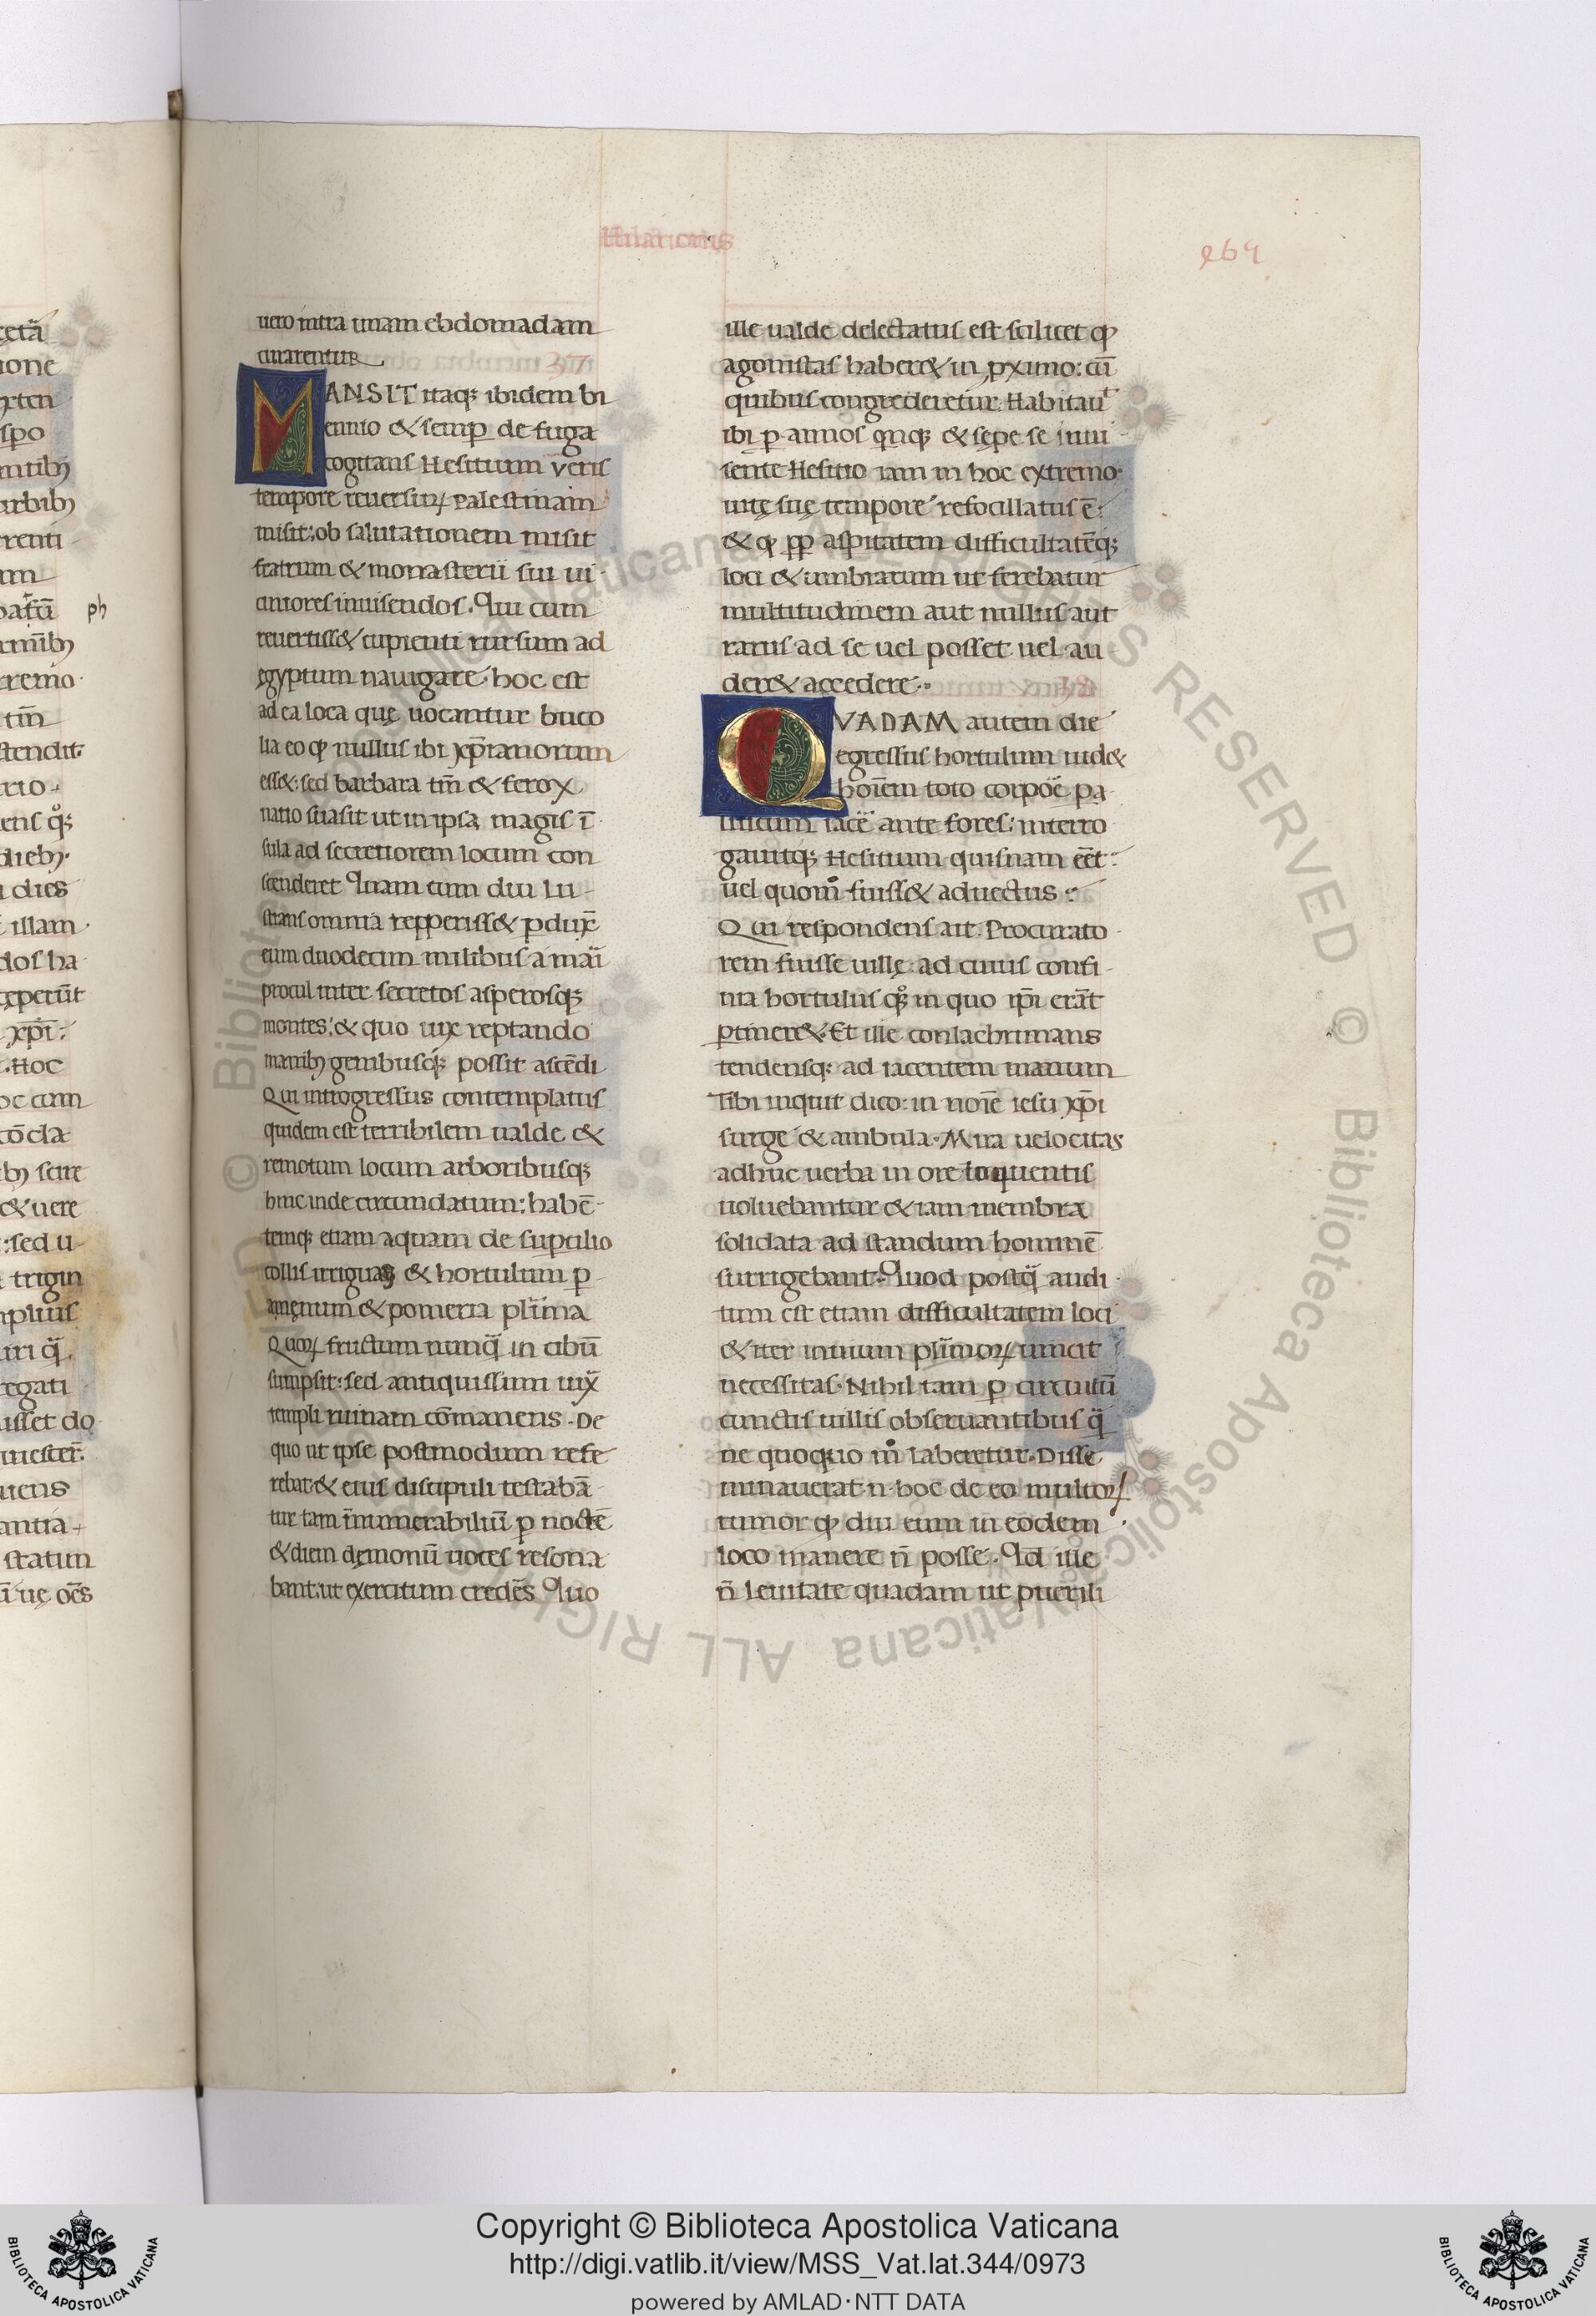 Hilarionis
469
uero intra unam ebdomadam
curarentur
37
MANSIT itaq; ibidem bi
ennio & semp̱ de fuga
cogitans Hesitium veris
tempore reuersuꝝ Palestinam
misit: ob salutationem misit
fratrum & monasterii sui ui
ciniores inuisendos. Qui cum
reuertiss& cupienti rursum ad
ęgyptum nauigare hoc est
ad ea loca quę uocantur buco
lia eo ꝙ nullus ibi xp̄ianorum
ess&: sed barbara tm̄ & ferox
natio suasit ut in ipsa magis ī
sula ad secretiorem locum con
scenderet Quam cum diu lu
strans omnia repperiss& ꝑduxᷓ
eum duodecim milibus a mari
procul inter secretos asperosq;
montes: & quo uix reptando
manibꝫ genibusq; possit ascēdi
Qui introgressus contemplatus
quidem est terribilem ualde &
remotum locum arboribusq;
hinc inde circundatum: habē
temq; etiam aquam de suꝑcilio
collis irriguas & hortulum ꝑ
amęnum & pomeria plima
Quoꝝ fructum nunqᷓ in cibū
sumpsit: sed antiquissimi iuxᷓ
templi ruinam cōmanens. De
quo ut ipse postmodum refe
rebat & eius discipuli testabā
tur tam innumerabiliū ꝑ noctē
& diem dęmonū uoces resona
bant: ut exercitum credēs Quo
ille ualde delectatus est scilicet ꝙ
agonistas haber& in ꝓximo: cū
quibus congrederetur. Habitauᵗ
ibi ꝑ annos qnq; & sępe se inui
sente Hesitio iam in hoc extremo
uitę suę tempore refocillatus ē:
& ꝙ ꝓꝑ aspitatem difficultatēq;
loci & umbrarum ut ferebatur
multitudinem aut nullus aut
rarus ad se uel posset uel au
der& accedere
38
QVADAM autem die
egressus hortulum uid&
hoīem toto corpoē pa
luticum iacē ante fores: interro
gauitq; Hesitium quisnam eēt:
uel quom̊ fuiss& aduectus
Qui respondens ait. Procurato
rem fuisse uillę: ad cuius confi
nia hortulus q̊; in quo ip̄i erāt
ꝑtiner&. Et ille conlachrimans
tendensq; ad iacentem manum
Tibi inquit dico: in noīe iesu xp̄i
surge & ambula. Mira uelocitas
adhuc uerba in ore loquentis
uoluebantur & iam membra
solidata ad standum hominē
surrigebant. Quod postqᷓ audi
tum est etiam difficultatem loci
& iter inuium plimoꝝ uincit
necessitas. Nihil tam ꝑ circuitū
cunctis uillis obseruantibus qᷓ
ne quoquo m̊ laberetur. Disse
minauerat n. hoc de eo multoꝝ
rumor ꝙ diu eum in eodem
loco manere n̄ posse. Qd̄ ille
n̄ leuitate quadam ut puerili
ph
Copyright © Biblioteca Apostolica Vaticana
http://digi.vatlib.it/view/MSS_Vat.lat.344/0973
powered by AMLAD·NTT DATA